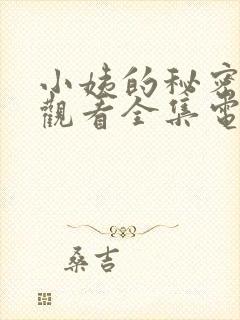 小姨的秘密
觀看全集電
桑吉